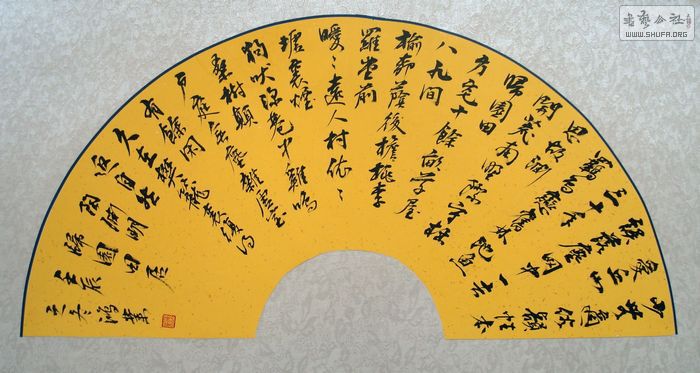 少無適俗願性本
愛丘山
誤落塵網中一去
三十年
羈鳥戀舊林池魚
思故淵
開荒南野際守拙
歸園田
方宅十餘畝草屋
八九間
榆柳蔭後檐桃李
羅堂前
曖々遠人村依々
墟里煙
狗吠深巷中雞鳴
桑樹顛
戶庭無塵雜虛室
有餘閑
久在樊籠裏復得
返自然
陶淵明歸園田居
壬辰
之冬鴻業
WWW.SHUFA.ORG